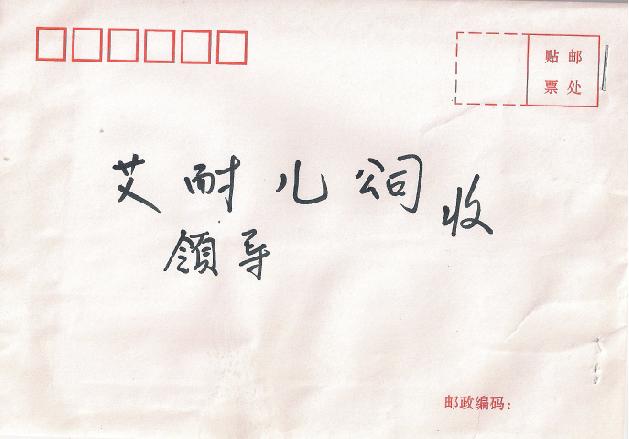 贴邮
票处
艾耐儿公司 收
領导
邮政编码: